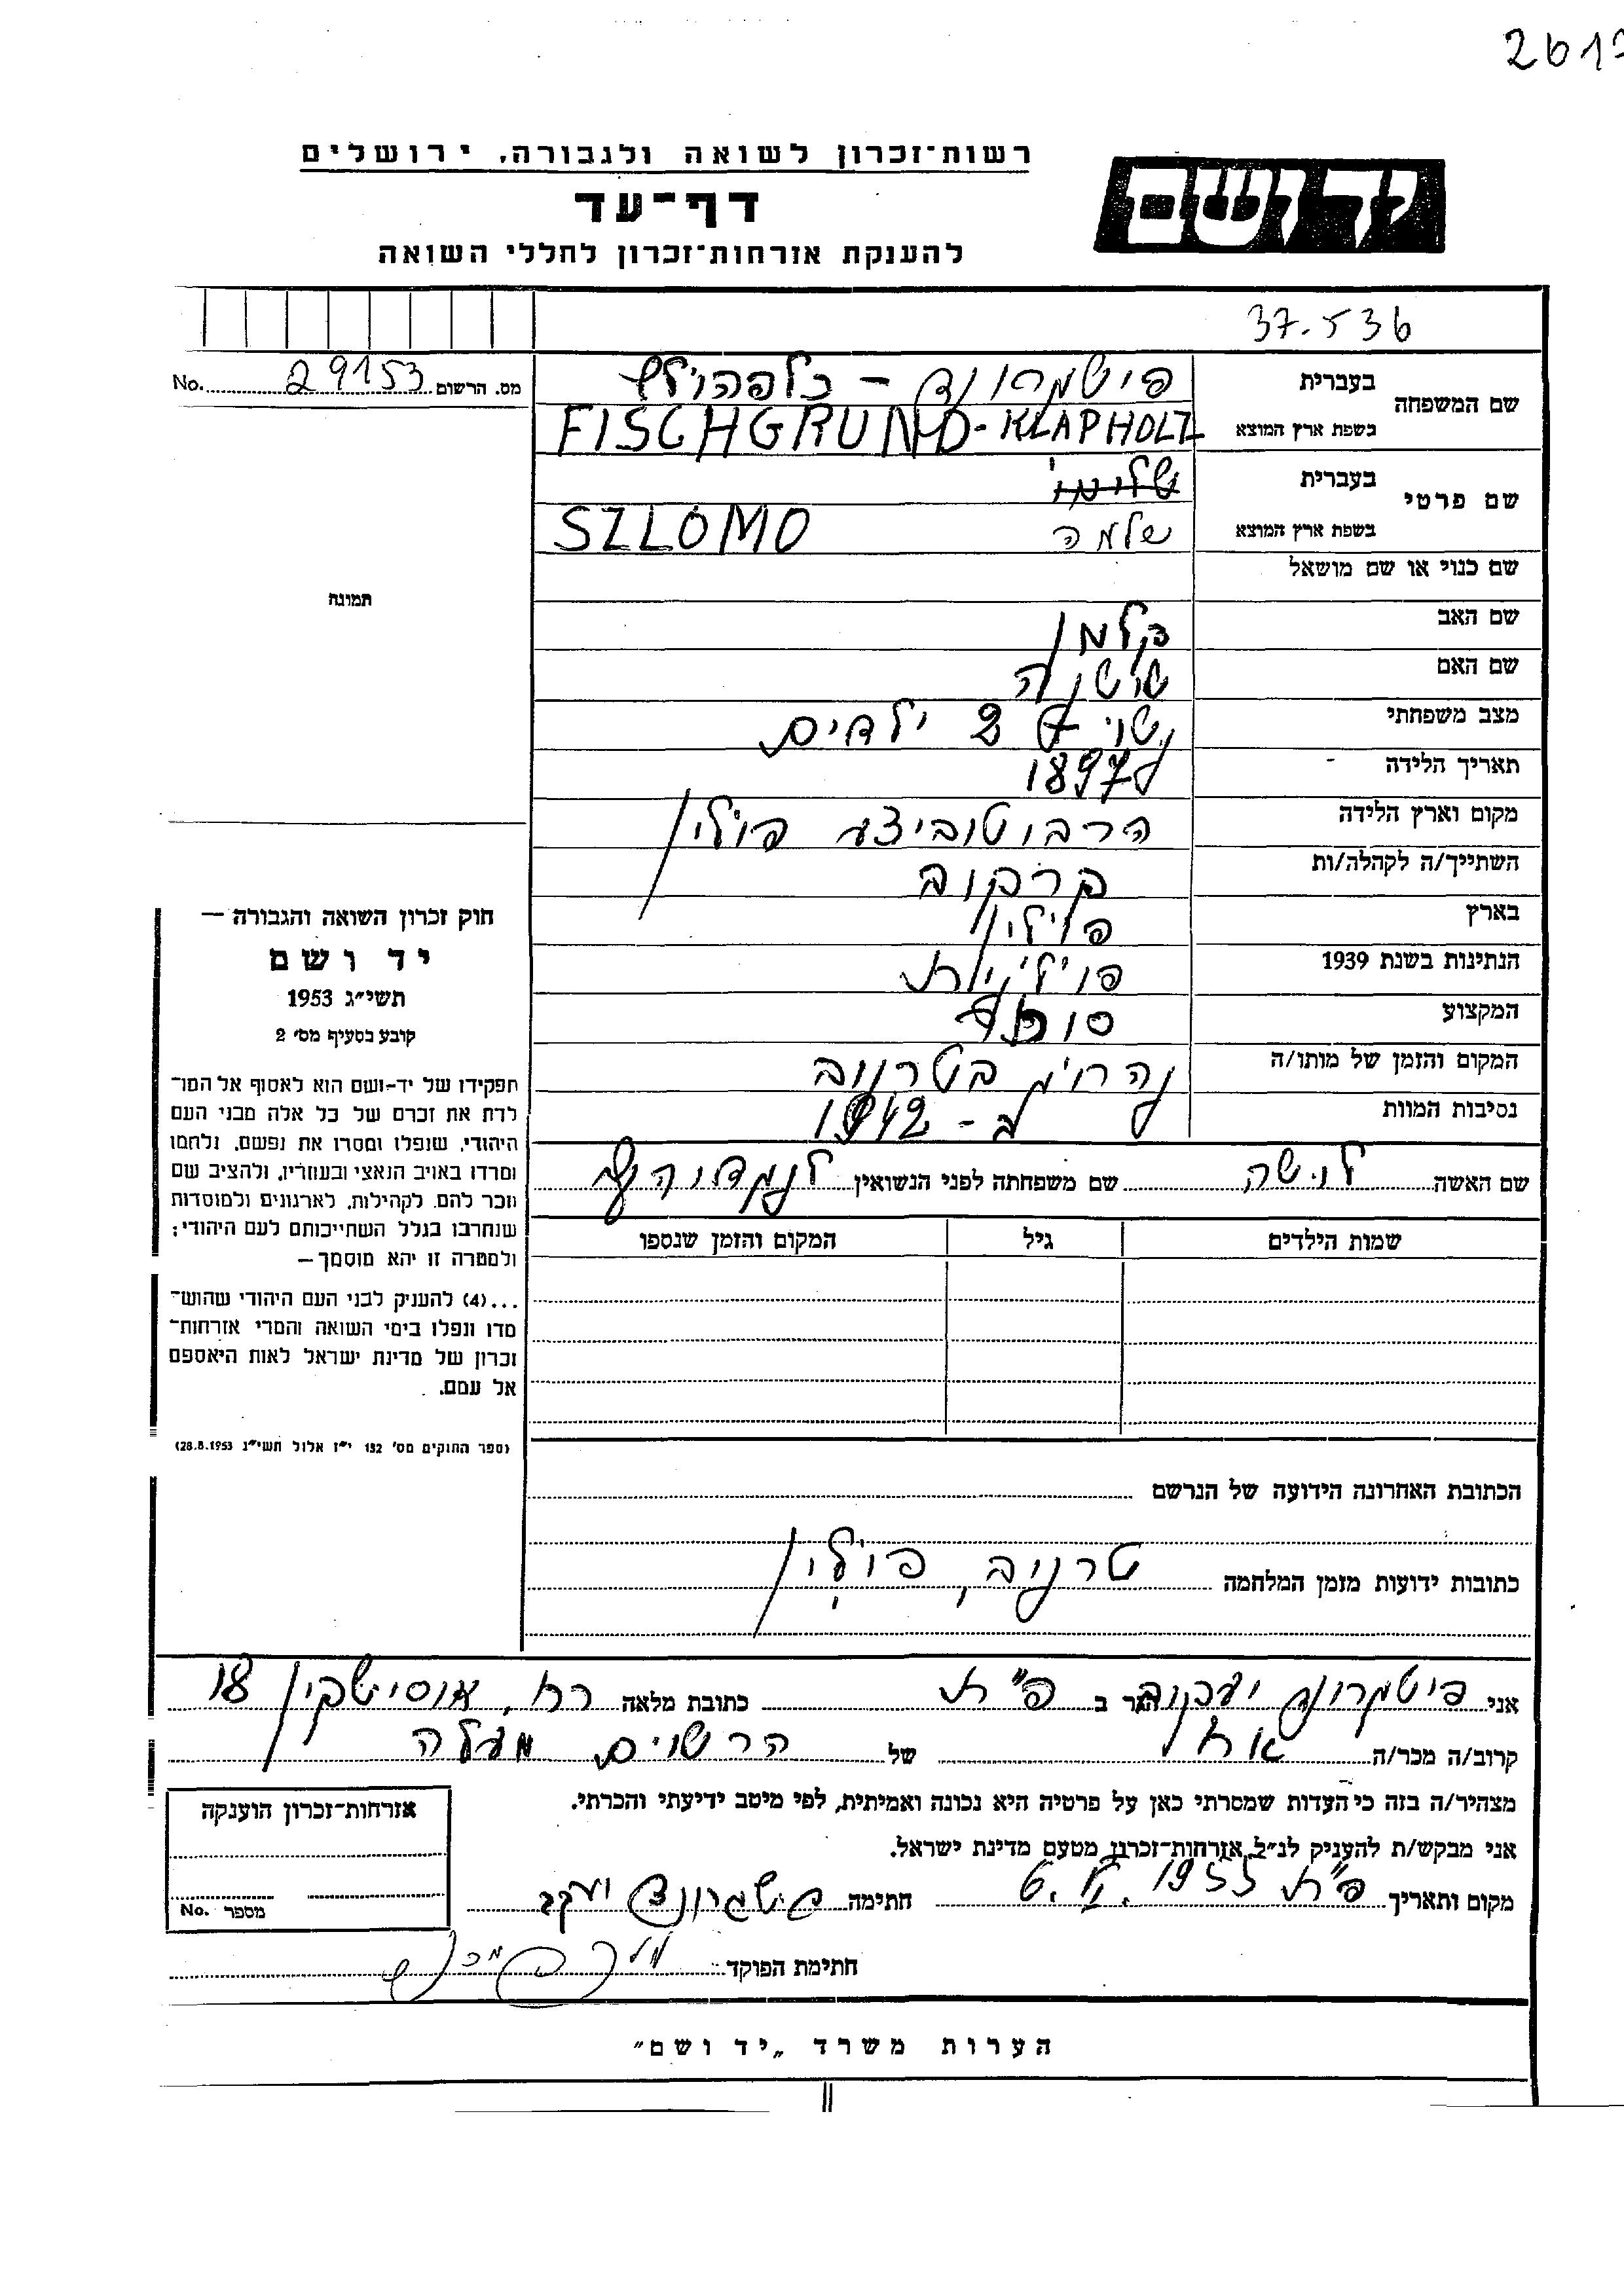 261
רשות־זכרון לשואה ולגבורה, ירושלים
יד ושם
דף־עד
להענקת אזרחות־זכרון לחללי השואה
37.536
מס. הרשום 29153 No.
שם המשפחה
בעברית פישגרונד - כלפהולץ
בשפת ארץ המוצא FISCHGRUND-KLAPHOLTZ
שם פרטי
בעברית
בשפת ארץ המוצא שלמה SZLOMO
שם כנוי או שם מושאל
תמונה
שם האב קלמן
שם האם שושנה
מצב משפחתי נשוי + 2 ילדים
תאריך הלידה 1897
מקום וארץ הלידה הרבוטוביצע פולין
השתייך/ה לקהלה/ות קרקוב
בארץ פולין
הנתינות בשנת 1939 פולנית
המקצוע סוחר
המקום והזמן של מותו/ה נהרג בטרנוב
נסיבות המוות ב - 1942
שם האשה לושה שם משפחתה לפני הנשואין
שמות הילדים גיל המקום והזמן שנספו
חוק זכרון השואה והגבורה —
יד ושם
תשי״ג 1953
קובע בסעיף מס׳ 2
תפקידו של יד-ושם הוא לאסוף אל המו־
לדת את זכרם של כל אלה מבני העם
היהודי, שנפלו ומסרו את נפשם, נלחמו
ומרדו באויב הנאצי ובעוזריו, ולהציב שם
וזכר להם, לקהילות, לארגונים ולמוסדות
שנחרבו בגלל השתייכותם לעם היהודי;
ולמטרה זו יהא מוסמך—
...(4) להעניק לבני העם היהודי שהוש־
מדו ונפלו בימי השואה והמרי אזרחות־
זכרון של מדינת ישראל לאות היאספם
אל עמם.
(ספר החוקים מס׳ 132 י״ז אלול תשי״ג 28.8.1953)
הכתובת האחרונה הידועה של הנרשם
כתובות ידועות מזמן המלחמה טרנוב, פולין
אני פישגרונד יעקב הגר ב פ״ת כתובת מלאה רח. אוסישקין 18
קרוב/ה מכר/ה אח של הרשום מעלה
מצהיר/ה בזה כי העדות שמסרתי כאן על פרטיה היא נכונה ואמיתית, לפי מיטב ידיעתי והכרתי.
אני מבקש/ת להעניק לנ״ל אזרחות־זכרון מטעם מדינת ישראל.
מקום ותאריך פ״ת 1955 חתימה פישגרונד יעקב
חתימת הפוקד
אזרחות־זכרון הוענקה
מספר No.
הערות משרד „יד ושם״